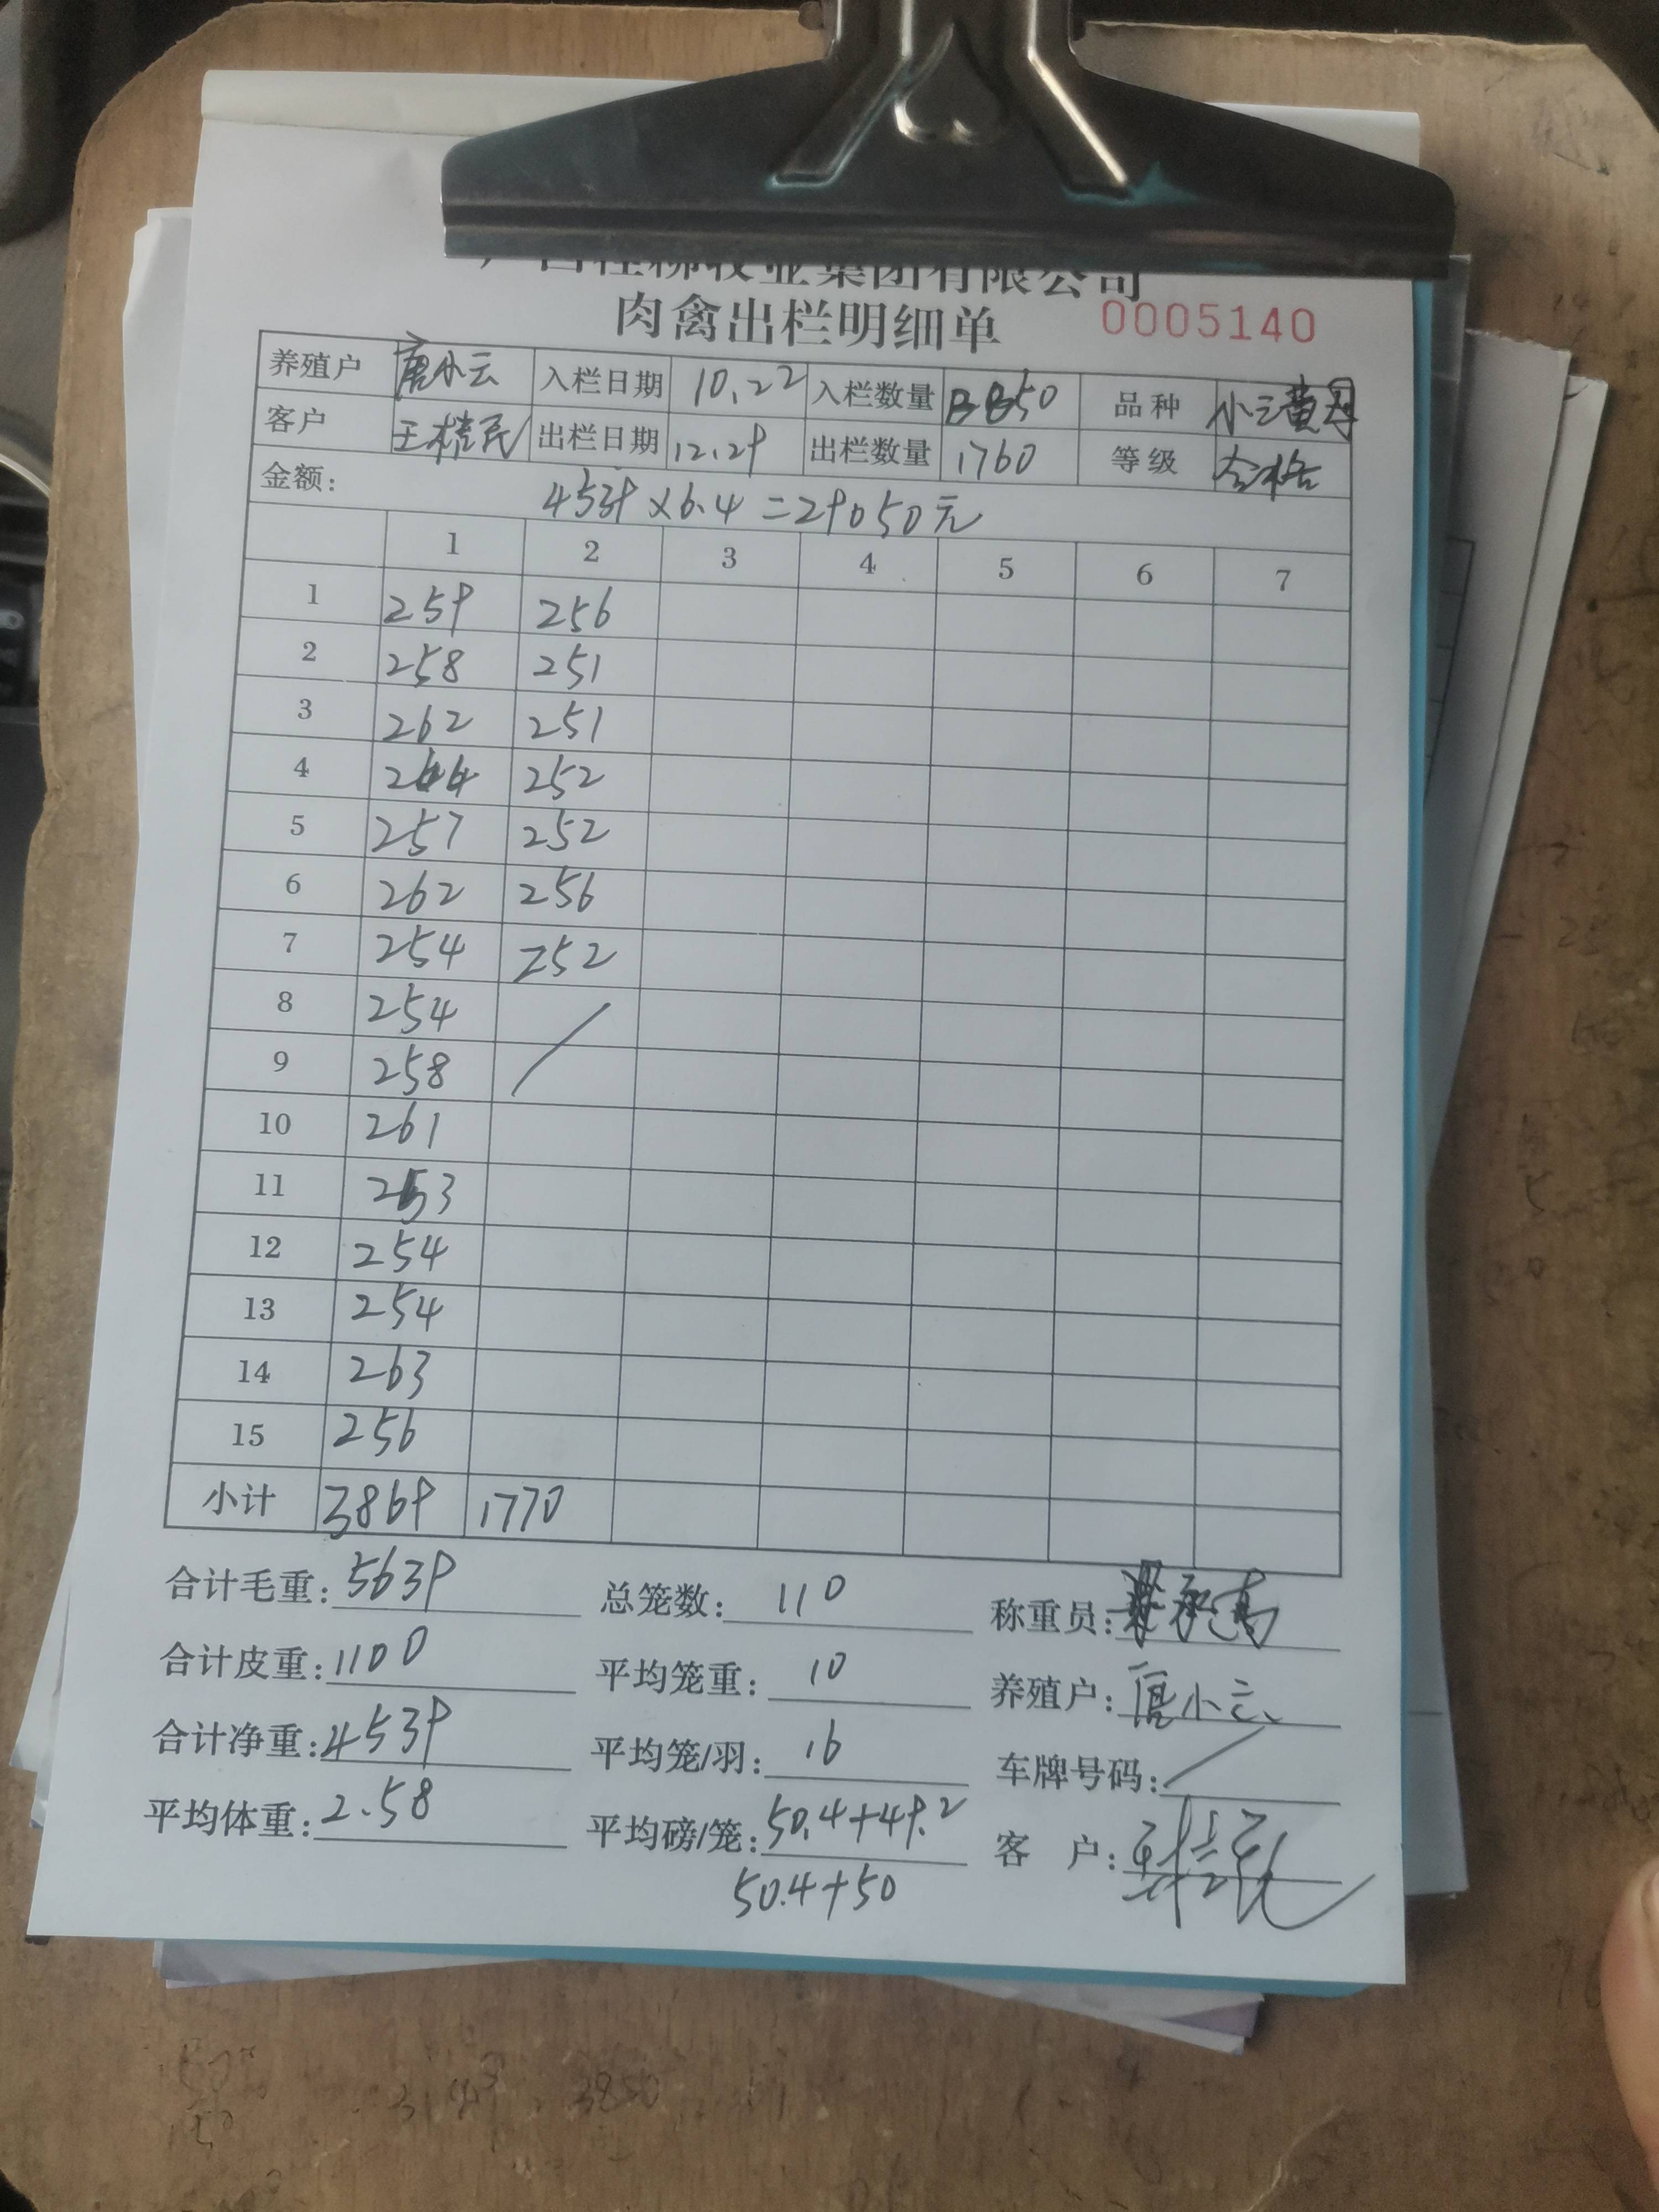 广西桂柳牧业集团有限公司
肉禽出栏明细单 0005140
养殖户 唐小云 入栏日期 10.22 入栏数量 50 品种 小三黄
客户 王桂民 出栏日期 12.29 出栏数量 1760 等级 合格
金额: 4539×6.4=29050元
1 2 3 4 5 6 7
1 259 256
2 258 251
3 262 251
4 264 252
5 257 252
6 262 256
7 254 252
8 254
9 258
10 261
11 253
12 254
13 254
14 263
15 256
小计 3869 1770
合计毛重: 5639 总笼数: 110 称重员:
合计皮重: 1100 平均笼重: 10 养殖户: 唐小云
合计净重: 4539 平均笼/羽: 16 车牌号码: /
平均体重: 2.58 平均磅/笼: 50.4+49.2 客 户:
50.4+50